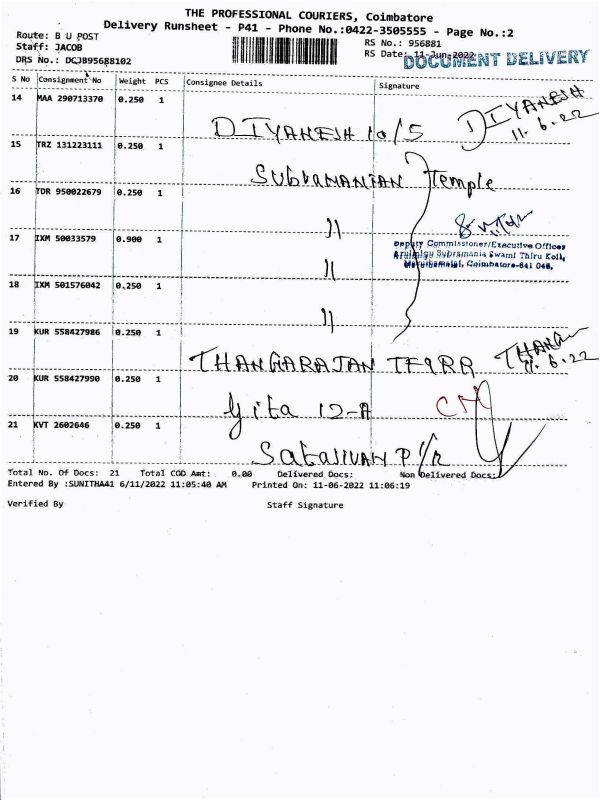 THE PROFESSIONAL COURIERS, Coimbatore
Delivery Runsheet - P41 - Phone No.:0422-3505555 - Page No.:2
Route: B U POST
RS No.: 956881
Staff: JACOB
RS Date: 11-Jun-2022
DOCUMENT DELIVERY
DRS No.: DCJB95688102
S No Consignment No Weight PCS Consignee Details Signature
14 MAA 290713370 0.250 1
DIYANESH 10/5 DIYANESH
11.6.22
15 TRZ 131223111 0.250 1
SUBURMANIAN Temple
16 TDR 950022679 0.250 1
"
17 IXM 50033579 0.900 1
Deputy Commissioner/Executive Officer
Arulmigu Subramania Swami Thiru Koil,
Maruthamalai, Coimbatore-641 046.
"
18 IXM 501576042 0.250 1
"
19 KUR 558427986 0.250 1
THANGARAJAN TF9RR THANGA
11.6.22
20 KUR 558427990 0.250 1
Gita 12-A CM
21 KVT 2602646 0.250 1
P/R
Total No. Of Docs: 21 Total COD Amt: 0.00 Delivered Docs: Non Delivered Docs:
Entered By :SUNITHA41 6/11/2022 11:05:40 AM Printed On: 11-06-2022 11:06:19
Verified By Staff Signature